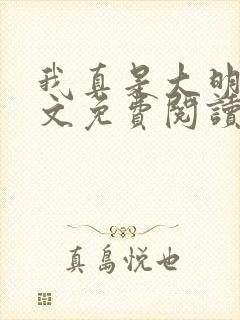 我真是大明
文免费阅讀
真島悦也